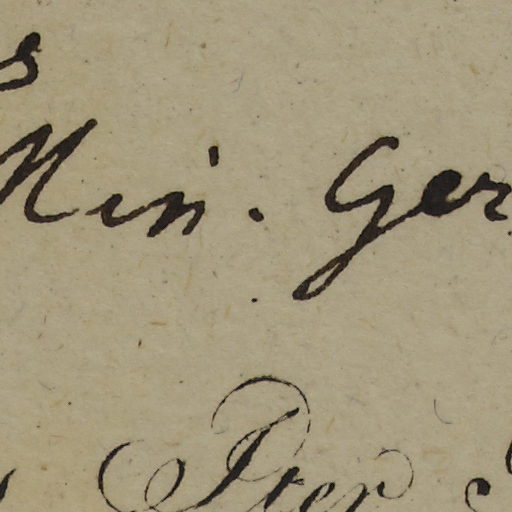 s
Min. Ger
Pter